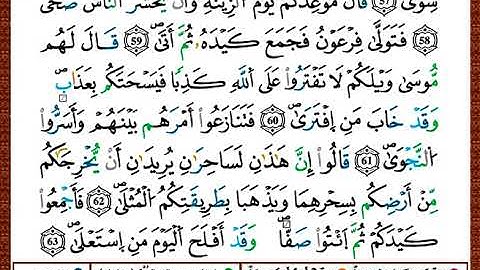 سِوىً ۝57 قَالَ مَوْعِدُكُمْ يَوْمُ الزِّينَةِ وَأَنْ يُحْشَرَ النَّاسُ ضُحىً
۝58 فَتَوَلَّىٰ فِرْعَوْنُ فَجَمَعَ كَيْدَهُ ثُمَّ أَتَىٰ ۝59 قَالَ لَهُم
مُّوسَىٰ وَيْلَكُمْ لَا تَفْتَرُواْ عَلَى اللَّهِ كَذِبًا فَيَسْحَتَكُم بِعَذَابٍ
وَقَدْ خَابَ مَنِ افْتَرَىٰ ۝60 فَتَنَازَعُواْ أَمْرَهُم بَيْنَهُمْ وَأَسَرُّواْ
النَّجْوَىٰ ۝61 قَالُواْ إِنَّ هَٰذَانِ لَسَاحِرَانِ يُرِيدَانِ أَنْ يُخْرِجَاكُم
مِّنْ أَرْضِكُم بِسِحْرِهِمَا وَيَذْهَبَا بِطَرِيقَتِكُمُ الْمُثْلَىٰ ۝62 فَأَجْمِعُواْ
كَيْدَكُمْ ثُمَّ ائْتُواْ صَفًّا وَقَدْ أَفْلَحَ الْيَوْمَ مَنِ اسْتَعْلَىٰ ۝63